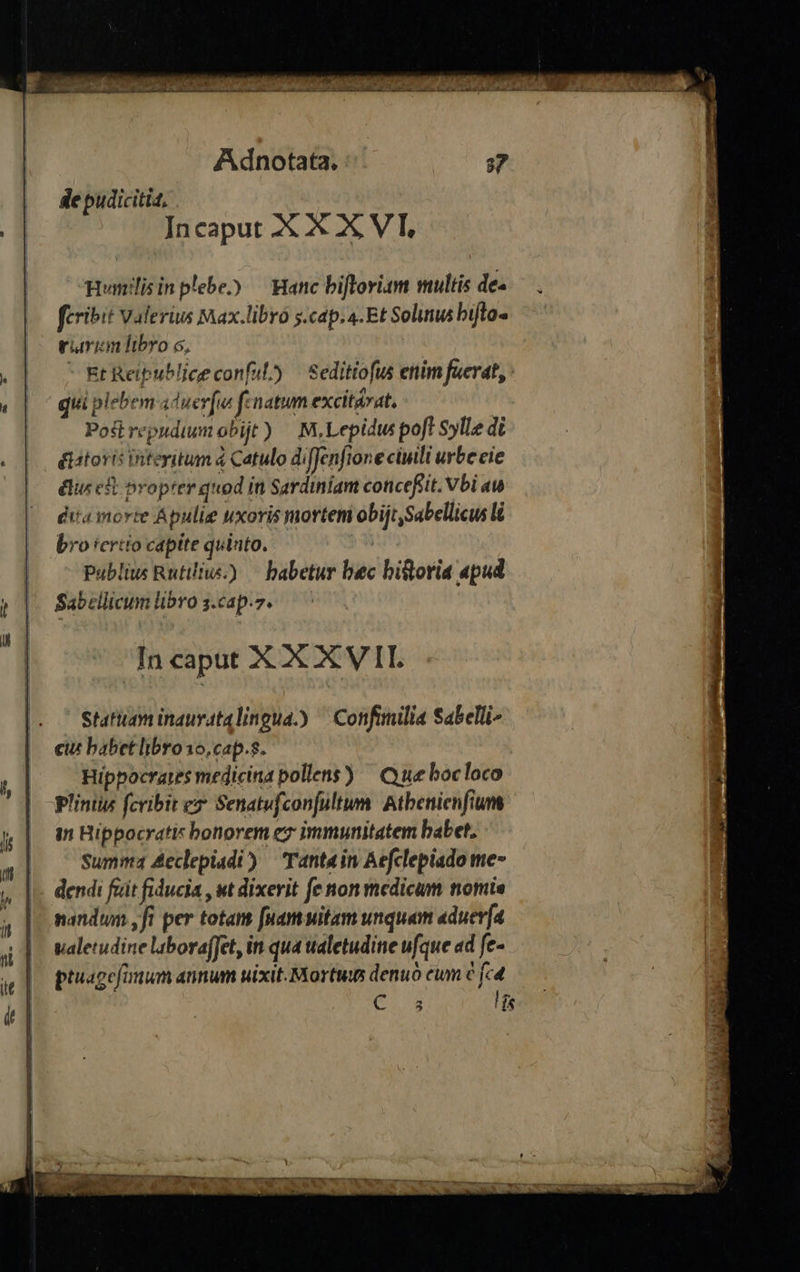 Adnotata. 37
de pudicitia.
In caput XXXVI.
Humilis in plebe.) Hanc historiam multis de-
scribit Valerius Max. libro 5. cap. 4. Et Solinus histo-
riarum libro 6,
Et Reipublicæ consul.) Seditiosus enim fuerat,
qui plebem aduersus senatum excitârat.
Post repudium obijt) M. Lepidus post Syllæ di
ctatoris interitum à Catulo dissensione ciuili urbe eie
ctus est propter quod in Sardiniam concessit. Vbi au
dita morte Apuliæ uxoris mortem obijt, Sabellicus li
bro tertio capite quinto.
Publius Rutilius.) habetur hæc historia apud
Sabellicum libro 3. cap. 7.
In caput XXXVII.
Statuam inaurata lingua.) Consimilia Sabelli-
cus habet libro 10, cap. 8.
Hippocrates medicina pollens) Quæ hoc loco
Plinius scribit & Senatusconsultum Atheniensium
in Hippocratis honorem & immunitatem habet.
Summa Aeclepiadi) Tanta in Aesclepiado me-
dendi fuit fiducia, ut dixerit se non medicum nomi-
nandum, si per totam suam uitam unquam aduersa
ualetudine laborasset, in qua ualetudine usque ad se-
ptuagesimum annum uixit. Mortuus denuò cum è sca
C 3 lis